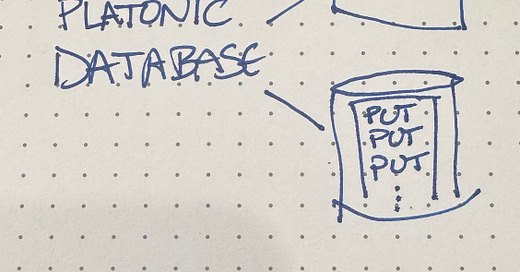 PLATONIC
DATABASE
PUT
PUT
PUT